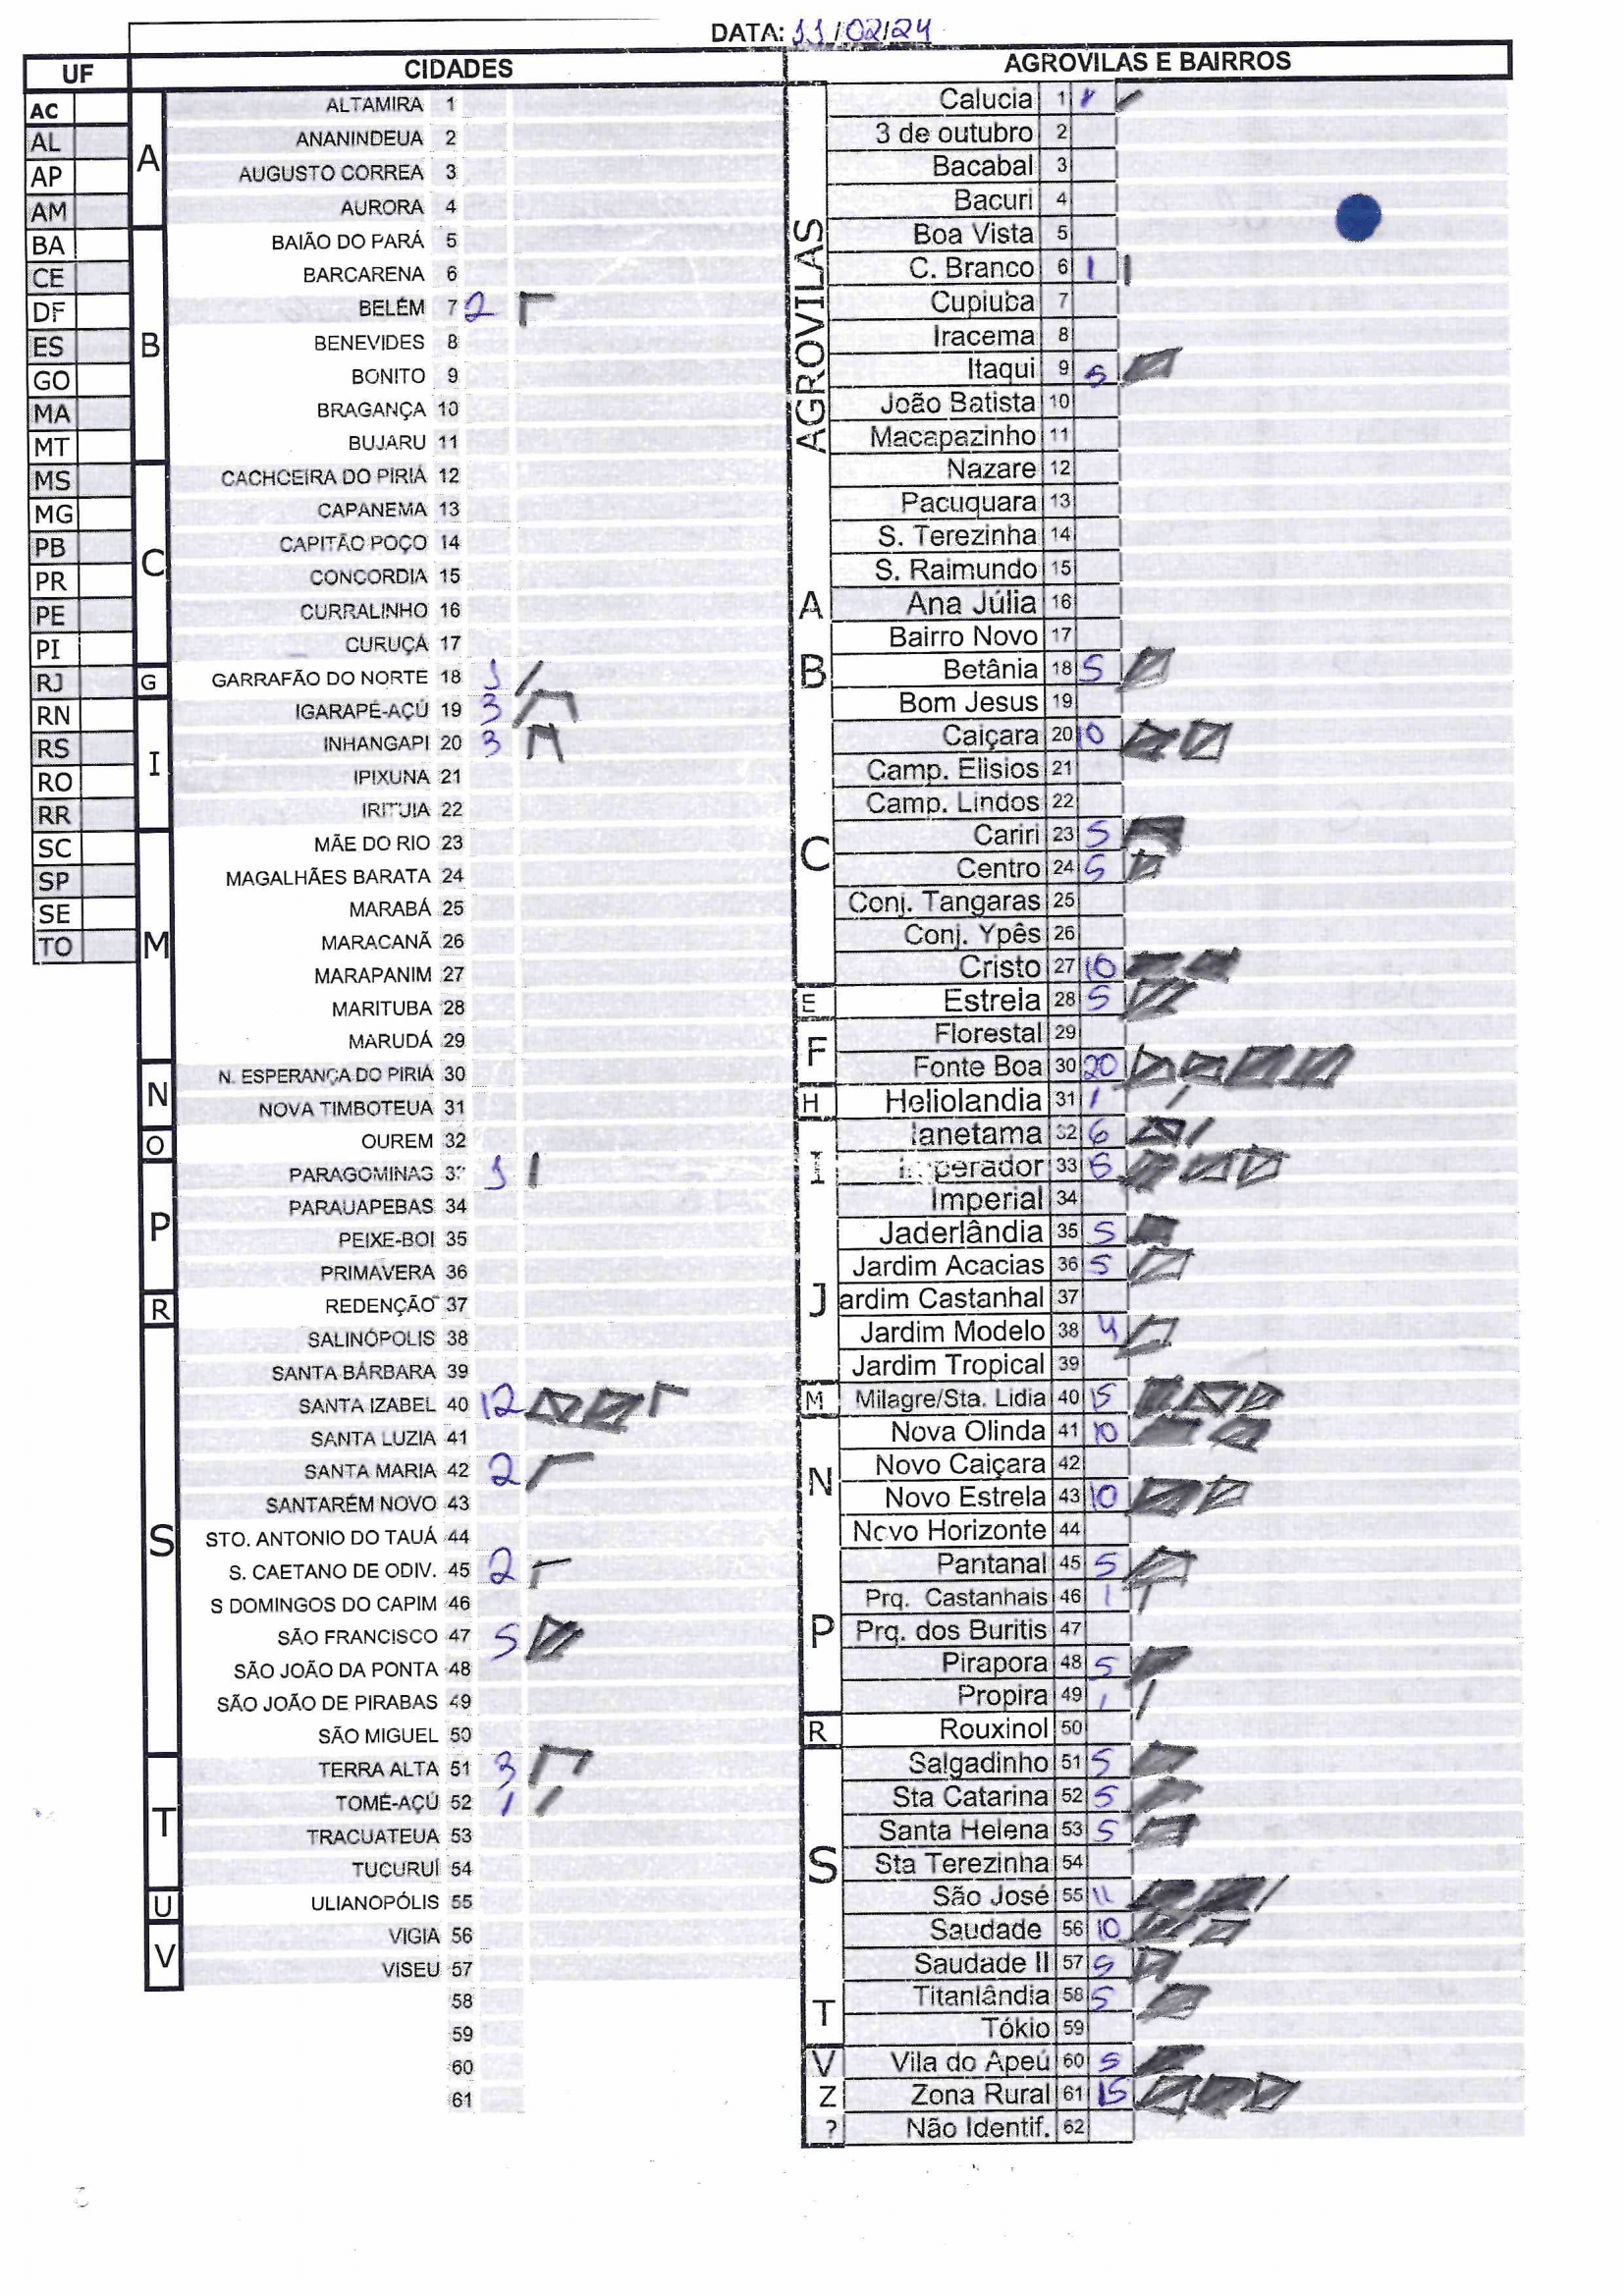 DATA: 11/02/24
UF
CIDADES
AGROVILAS E BAIRROS
AC
AL
AP
AM
BA
CE
DF
ES
GO
MA
MT
MS
MG
PB
PR
PE
PI
RJ
RN
RS
RO
RR
SC
SP
SE
TO
A
ALTAMIRA 1
ANANINDEUA 2
AUGUSTO CORREA 3
AURORA 4
B
BAIÃO DO PARÁ 5
BARCARENA 6
BELÉM 7 2
BENEVIDES 8
BONITO 9
BRAGANÇA 10
BUJARU 11
C
CACHOEIRA DO PIRIÁ 12
CAPANEMA 13
CAPITÃO POÇO 14
CONCORDIA 15
CURRALINHO 16
CURUÇÁ 17
G
GARRAFÃO DO NORTE 18 1
I
IGARAPÉ-AÇÚ 19 3
INHANGAPI 20 3
IPIXUNA 21
IRITUIA 22
M
MÃE DO RIO 23
MAGALHÃES BARATA 24
MARABÁ 25
MARACANÃ 26
MARAPANIM 27
MARITUBA 28
MARUDÁ 29
N
N. ESPERANÇA DO PIRIÁ 30
NOVA TIMBOTEUA 31
O
OUREM 32
P
PARAGOMINAS 33 1
PARAUAPEBAS 34
PEIXE-BOI 35
PRIMAVERA 36
R
REDENÇÃO 37
S
SALINÓPOLIS 38
SANTA BÁRBARA 39
SANTA IZABEL 40 12
SANTA LUZIA 41
SANTA MARIA 42 2
SANTARÉM NOVO 43
STO. ANTONIO DO TAUÁ 44
S. CAETANO DE ODIV. 45 2
S DOMINGOS DO CAPIM 46
SÃO FRANCISCO 47 5
SÃO JOÃO DA PONTA 48
SÃO JOÃO DE PIRABAS 49
SÃO MIGUEL 50
T
TERRA ALTA 51 3
TOMÉ-AÇÚ 52 1
TRACUATEUA 53
TUCURUÍ 54
U
ULIANOPÓLIS 55
V
VIGIA 56
VISEU 57
58
59
60
61
AGROVILAS
Calucia 1
3 de outubro 2
Bacabal 3
Bacuri 4
Boa Vista 5
C. Branco 6 1
Cupiuba 7
Iracema 8
Itaqui 9 5
João Batista 10
Macapazinho 11
Nazare 12
Pacuquara 13
S. Terezinha 14
S. Raimundo 15
A
Ana Júlia 16
B
Bairro Novo 17
Betânia 18 5
Bom Jesus 19
C
Caiçara 20 10
Camp. Elisios 21
Camp. Lindos 22
Cariri 23 5
Centro 24 5
Conj. Tangaras 25
Conj. Ypês 26
Cristo 27 10
E
Estrela 28 5
F
Florestal 29
Fonte Boa 30 20
H
Heliolandia 31 1
I
Ianetama 32 6
perador 33 6
Imperial 34
J
Jaderlândia 35 5
Jardim Acacias 36 5
ardim Castanhal 37
Jardim Modelo 38 4
Jardim Tropical 39
M
Milagre/Sta. Lidia 40 15
N
Nova Olinda 41 10
Novo Caiçara 42
Novo Estrela 43 10
Novo Horizonte 44
P
Pantanal 45 5
Prq. Castanhais 46 1
Prq. dos Buritis 47
Pirapora 48 5
Propira 49 1
R
Rouxinol 50
S
Salgadinho 51 5
Sta Catarina 52 5
Santa Helena 53 5
Sta Terezinha 54
São José 55 11
Saudade 56 10
Saudade II 57 5
T
Titanlândia 58 5
Tókio 59
V
Vila do Apeú 60 5
Z
Zona Rural 61 15
?
Não Identif. 62